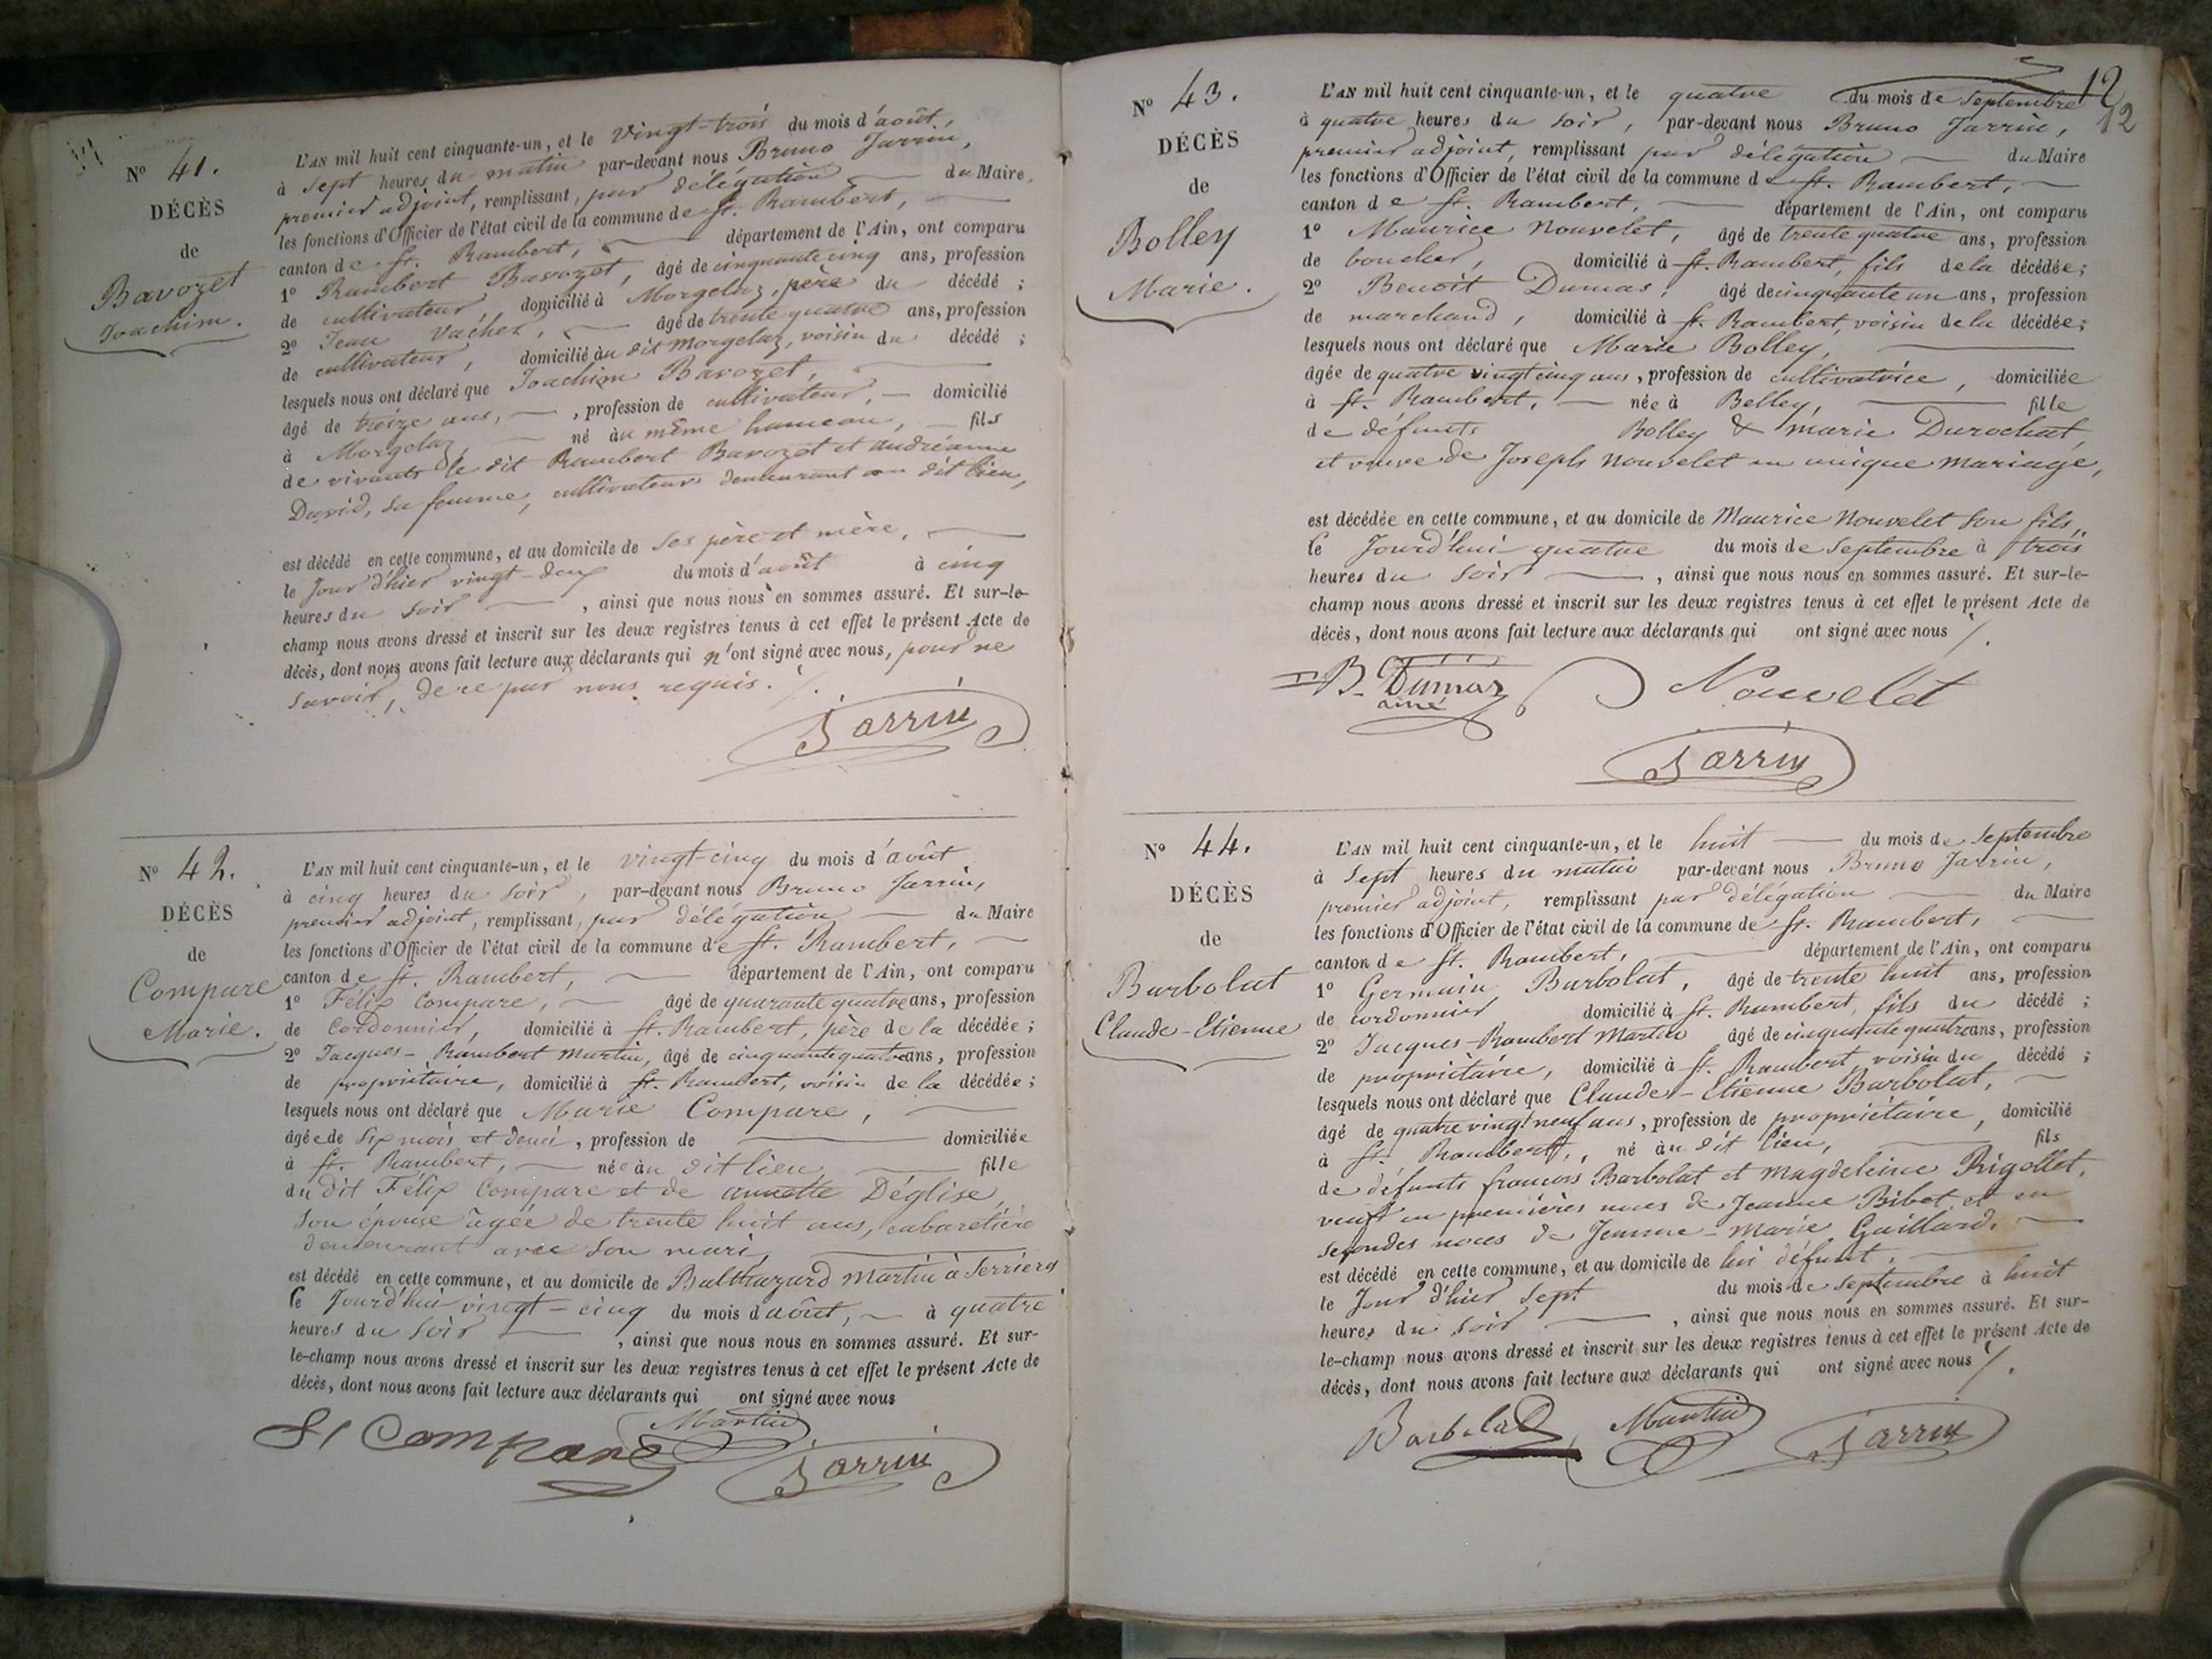 N° 41.
DÉCÈS
de
Bavozet
Joachim.
L'AN mil huit cent cinquante-un, et le vingt-trois du mois d'août,
à sept heures du matin par-devant nous Bruno Jarrin,
premier adjoint, remplissant, par délégation du Maire,
les fonctions d'Officier de l'état civil de la commune de St. Rambert,
canton de St. Rambert, département de l'Ain, ont comparu
1° Rambert Bavozet, âgé de cinquante cinq ans, profession
de cultivateur, domicilié à Morgelaz, père du décédé ;
2° Jean Vacher, âgé de trente quatre ans, profession
de cultivateur, domicilié au dit Morgelaz, voisin du décédé ;
lesquels nous ont déclaré que Joachim Bavozet,
âgé de treize ans, , profession de cultivateur, domicilié
à Morgelaz, né au même hameau, fils
de vivants le dit Rambert Bavozet et andréanne
David, sa femme, cultivateurs demeurant au dit lieu,
est décédé en cette commune, et au domicile de ses père et mère,
le jour d'hier vingt-deux du mois d'août à cinq
heures du soir , ainsi que nous nous en sommes assuré. Et sur-le-
champ nous avons dressé et inscrit sur les deux registres tenus à cet effet le présent Acte de
décès, dont nous avons fait lecture aux déclarants qui n'ont signé avec nous, pour ne
savoir, de ce par nous requis. /.
Jarrin
N° 42.
DÉCÈS
de
Compare
Marie.
L'AN mil huit cent cinquante-un, et le vingt-cinq du mois d'août
à cinq heures du soir, par-devant nous Bruno Jarrin,
premier adjoint, remplissant, par délégation du Maire
les fonctions d'Officier de l'état civil de la commune de St. Rambert,
canton de St. Rambert, département de l'Ain, ont comparu
1° Félix Compare, âgé de quarante quatre ans, profession
de Cordonnier, domicilié à St. Rambert, père de la décédée ;
2° Jacques-Rambert Martin, âgé de cinquante quatre ans, profession
de propriétaire, domicilié à St. Rambert, voisin de la décédée ;
lesquels nous ont déclaré que Marie Compare,
âgée de six mois et demi, profession de domiciliée
à St. Rambert, née au dit lieu fille
du dit Félix Compare et de annette Déglise,
son épouse âgée de trente huit ans, cabaretière
demeurant avec son mari,
est décédé en cette commune, et au domicile de Balthazard Martin à Serrières
le jourd'hui vingt-cinq du mois d'août, à quatre
heures du soir , ainsi que nous nous en sommes assuré. Et sur-
le-champ nous avons dressé et inscrit sur les deux registres tenus à cet effet le présent Acte de
décès, dont nous avons fait lecture aux déclarants qui ont signé avec nous
Compare
Martin
Jarrin
12
12
N° 43.
DÉCÈS
de
Bolley
Marie.
L'AN mil huit cent cinquante-un, et le quatre du mois de Septembre
à quatre heures du soir, par-devant nous Bruno Jarrin,
premier adjoint, remplissant par délégation du Maire
les fonctions d'Officier de l'état civil de la commune de St. Rambert,
canton de St. Rambert, département de l'Ain, ont comparu
1° Maurice Nouvelet, âgé de trente quatre ans, profession
de boucher, domicilié à St. Rambert, fils de la décédée ;
2° Benoit Dumas, âgé de cinquante un ans, profession
de marchand, domicilié à St. Rambert, voisin de la décédée ;
lesquels nous ont déclaré que Marie Bolley,
âgée de quatre vingt cinq ans, profession de cultivatrice, domiciliée
à St. Rambert, née à Belley, fille
de défunts Bolley & marie Durochat,
et veuve de Joseph Nouvelet en unique mariage,
est décédée en cette commune, et au domicile de Maurice Nouvelet son fils,
le jourd'hui quatre du mois de Septembre à trois
heures du soir , ainsi que nous nous en sommes assuré. Et sur-le-
champ nous avons dressé et inscrit sur les deux registres tenus à cet effet le présent Acte de
décès, dont nous avons fait lecture aux déclarants qui ont signé avec nous /.
B. Dumas
ainé
Nouvelet
Jarrin
N° 44.
DÉCÈS
de
Barbolat
Claude-Etienne
L'AN mil huit cent cinquante-un, et le huit du mois de Septembre
à sept heures du matin par-devant nous Bruno Jarrin,
premier adjoint, remplissant par délégation du Maire
les fonctions d'Officier de l'état civil de la commune de St. Rambert,
canton de St. Rambert, département de l'Ain, ont comparu
1° Germain Barbolat, âgé de trente huit ans, profession
de cordonnier domicilié à St. Rambert, fils du décédé ;
2° Jacques-Rambert Martin âgé de cinquante quatre ans, profession
de propriétaire, domicilié à St. Rambert, voisin du décédé ;
lesquels nous ont déclaré que Claude-Etienne Barbolat,
âgé de quatre vingt neuf ans, profession de propriétaire, domicilié
à St. Rambert, né au dit lieu, fils
de défunts françois Barbolat et Magdeleine Rigollet,
veuf en premières noces de Jeanne Bibet et en
secondes noces de Jeanne-Marie Gaillard,
est décédé en cette commune, et au domicile de lui défunt,
le jour d'hier sept du mois de septembre à huit
heures du soir , ainsi que nous nous en sommes assuré. Et sur-
le-champ nous avons dressé et inscrit sur les deux registres tenus à cet effet le présent Acte de
décès, dont nous avons fait lecture aux déclarants qui ont signé avec nous /.
Barbolat
Martin
Jarrin